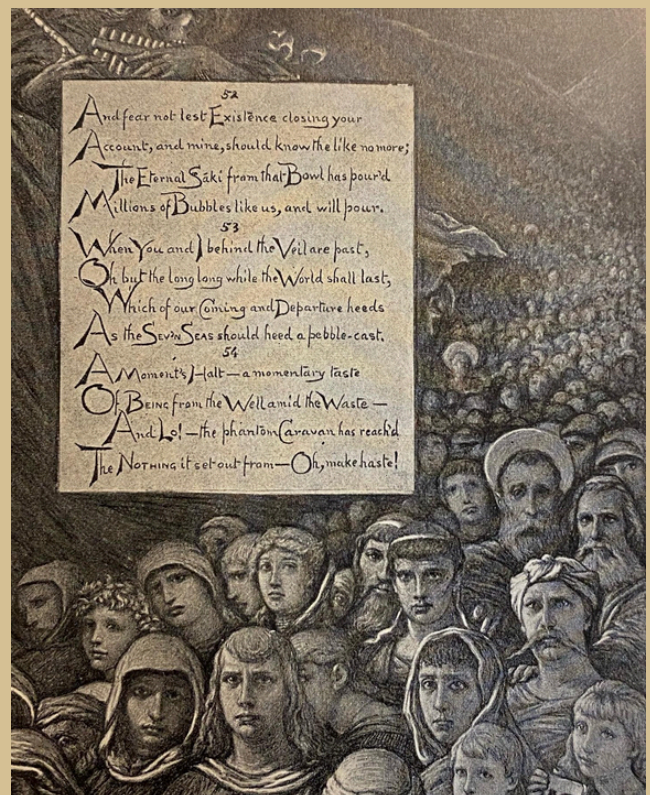 52
And fear not lest Existence closing your
Account, and mine, should know the like no more;
The Eternal Sáki from that Bowl has pour'd
Millions of Bubbles like us, and will pour.
53
When You and I behind the Veil are past,
Oh but the long long while the World shall last,
Which of our Coming and Departure heeds
As the SEV'N SEAS should heed a pebble-cast.
54
A Moment's Halt — a momentary taste
Of BEING from the Well amid the Waste —
And Lo! — the phantom Caravan has reach'd
The NOTHING it set out from — Oh, make haste!